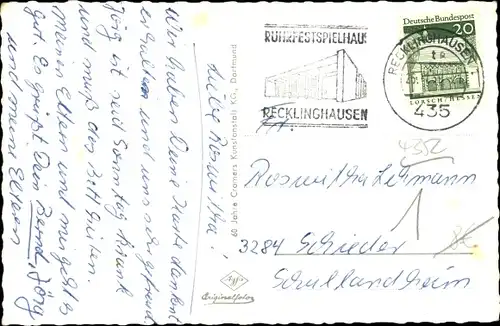 Liebe Roswitha!
Wir haben Deine Karte dankend
erhalten und uns sehr gefreut.
Jörg ist seid Sonntag krank
und muß das Bett hüten.
Meinen Eltern und mir geht es
gut. Es grüßt Dein Bernd, Jörg
und mein Eltern
60 Jahre Cramers Kunstanstalt KG., Dortmund
Agfa
Originalfoto
RUHRFESTSPIELHAUS
RECKLINGHAUSEN
Deutsche Bundespost
20
LORSCH/HESSEN
RECKLINGHAUSEN
435
4352
Roswitha Lehmann
1
3284 Schieder
Schullandheim